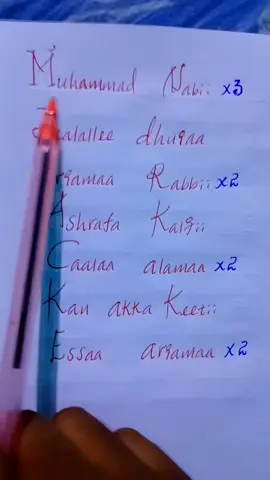 Muhammad Nabii x3
Jalallee dhugaa
Argamaa Rabbii x2
Ashrafa Kalqii
Caalaa alamaa x2
Kan akka Keetii
Essaa argamaa x2